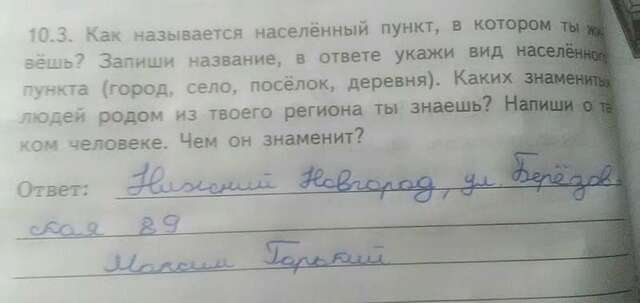 10.3. Как называется населённый пункт, в котором ты жи-
вёшь? Запиши название, в ответе укажи вид населённого
пункта (город, село, посёлок, деревня). Каких знаменитых
людей родом из твоего региона ты знаешь? Напиши о та-
ком человеке. Чем он знаменит?
Ответ: Нижний Новгород, ул. Берёзов-
ская 89
Максим Горький